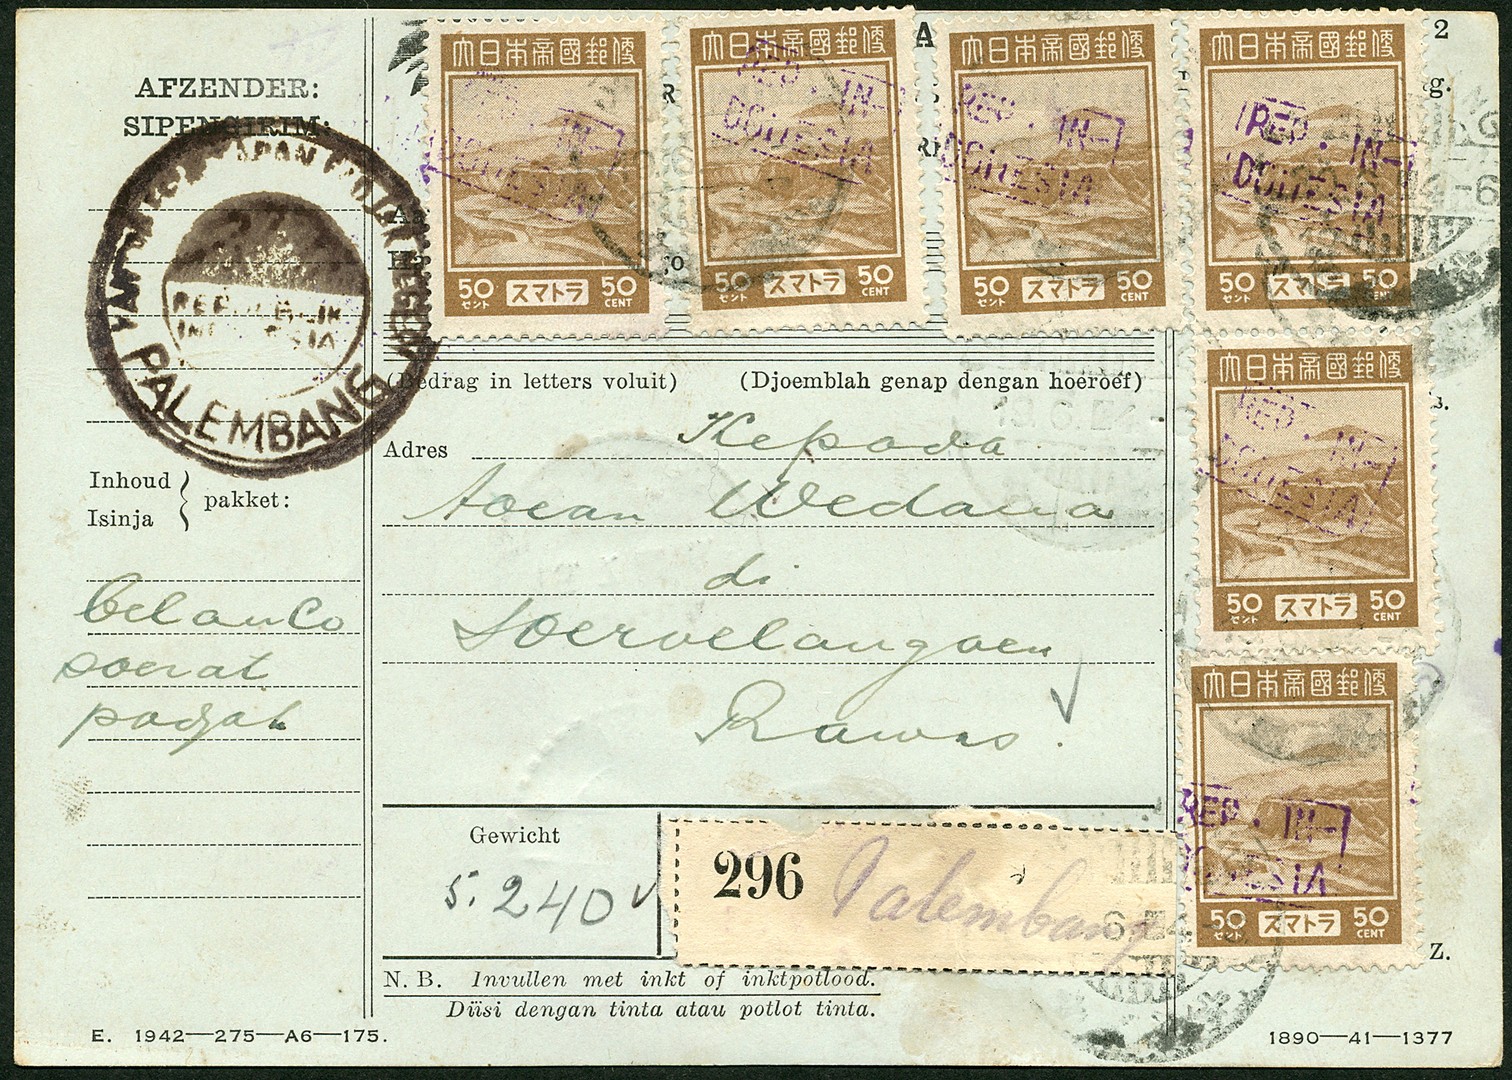 AFZENDER:
SIPENGIRIM:
PALEMBANG
REPUBLIK
INDONESIA
Inhoud
Isinja
pakket:
belanco
soerat
padjak
大日本帝國郵便
REP. IN-
DONESIA
50 セント スマトラ 50 CENT
大日本帝國郵便
REP. IN-
DONESIA
50 セント スマトラ 50 CENT
大日本帝國郵便
REP. IN-
DONESIA
50 セント スマトラ 50 CENT
大日本帝國郵便
REP. IN-
DONESIA
50 セント スマトラ 50 CENT
A
2
g.
(Bedrag in letters voluit) (Djoemblah genap dengan hoeroef)
Adres Kepada
toean Wedana
di
Soeroelangoen
Rawas.
大日本帝國郵便
REP. IN-
DONESIA
50 セント スマトラ 50 CENT
s.
大日本帝國郵便
REP. IN-
DONESIA
50 セント スマトラ 50 CENT
Z.
Gewicht
5.240
296 Palembang
N. B. Invullen met inkt of inktpotlood.
Diisi dengan tinta atau potlot tinta.
E. 1942—275—A6—175.
1890—41—1377